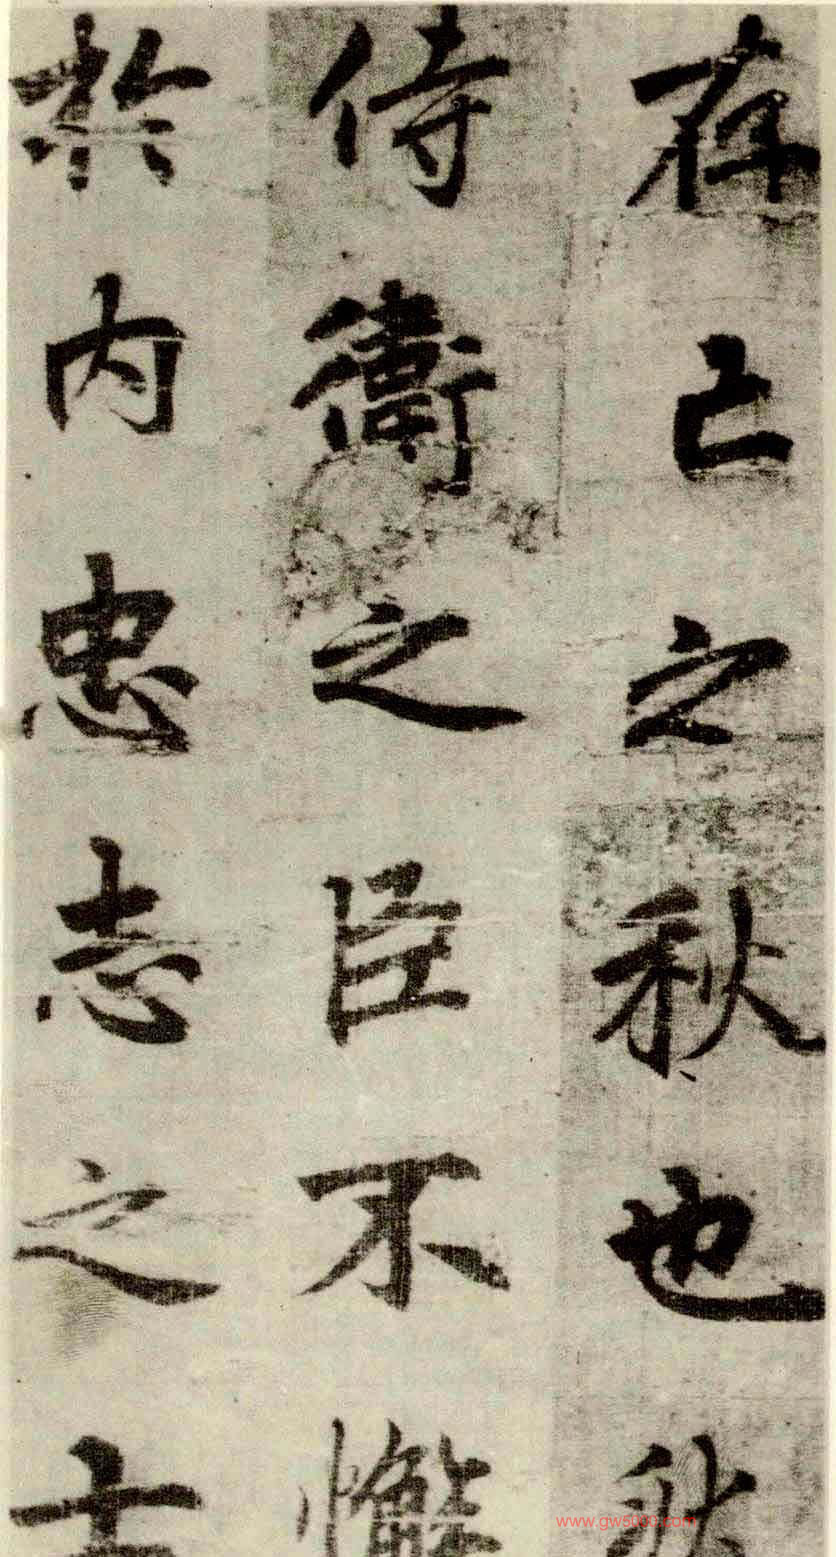 存亡之秋也然
侍衛之臣不懈
於内忠志之士
www.gw5000.com